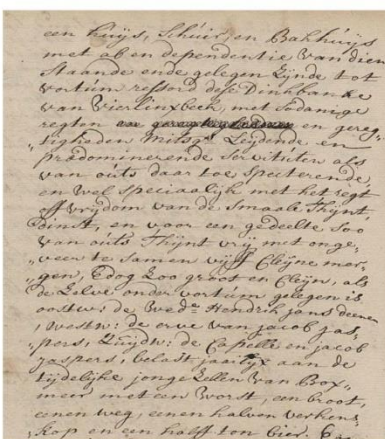 een huijs, Schúir, en Bakhúijs
met ab en dependentie van dien
Staande ende gelegen Eijnde tot
vortúm ressord dese Dinkbanke
van Vierlinxbeek, met Sodanige
regten en gereg-
„tigheden mitsgs Leijdende en
prædominerende Servitúten als
van oúts daar toe specterende,
en wel speciaalijk met het regt
off vrijdom van de Smaale Thijnt,
en voor een gedeelte Soo
van oúts Thijnt vrij met onge-
„veer te Samen vijff Cleijne mer-
„gen, Edog Zoo groot en Cleijn, als
de Zelve onder vortúm gelegen is
oostw: de Wede Hendrik Jans
„Westw: de erve van Jacob Jas-
„pers, Zuijdw: de Capelle en Jacob
Jaspers, belast aan de
tijdelijke jonge Zellen van Box-
meer met een Worst, een broot,
eenen weg, eenen halven verkens
kop en een halff ton bier.